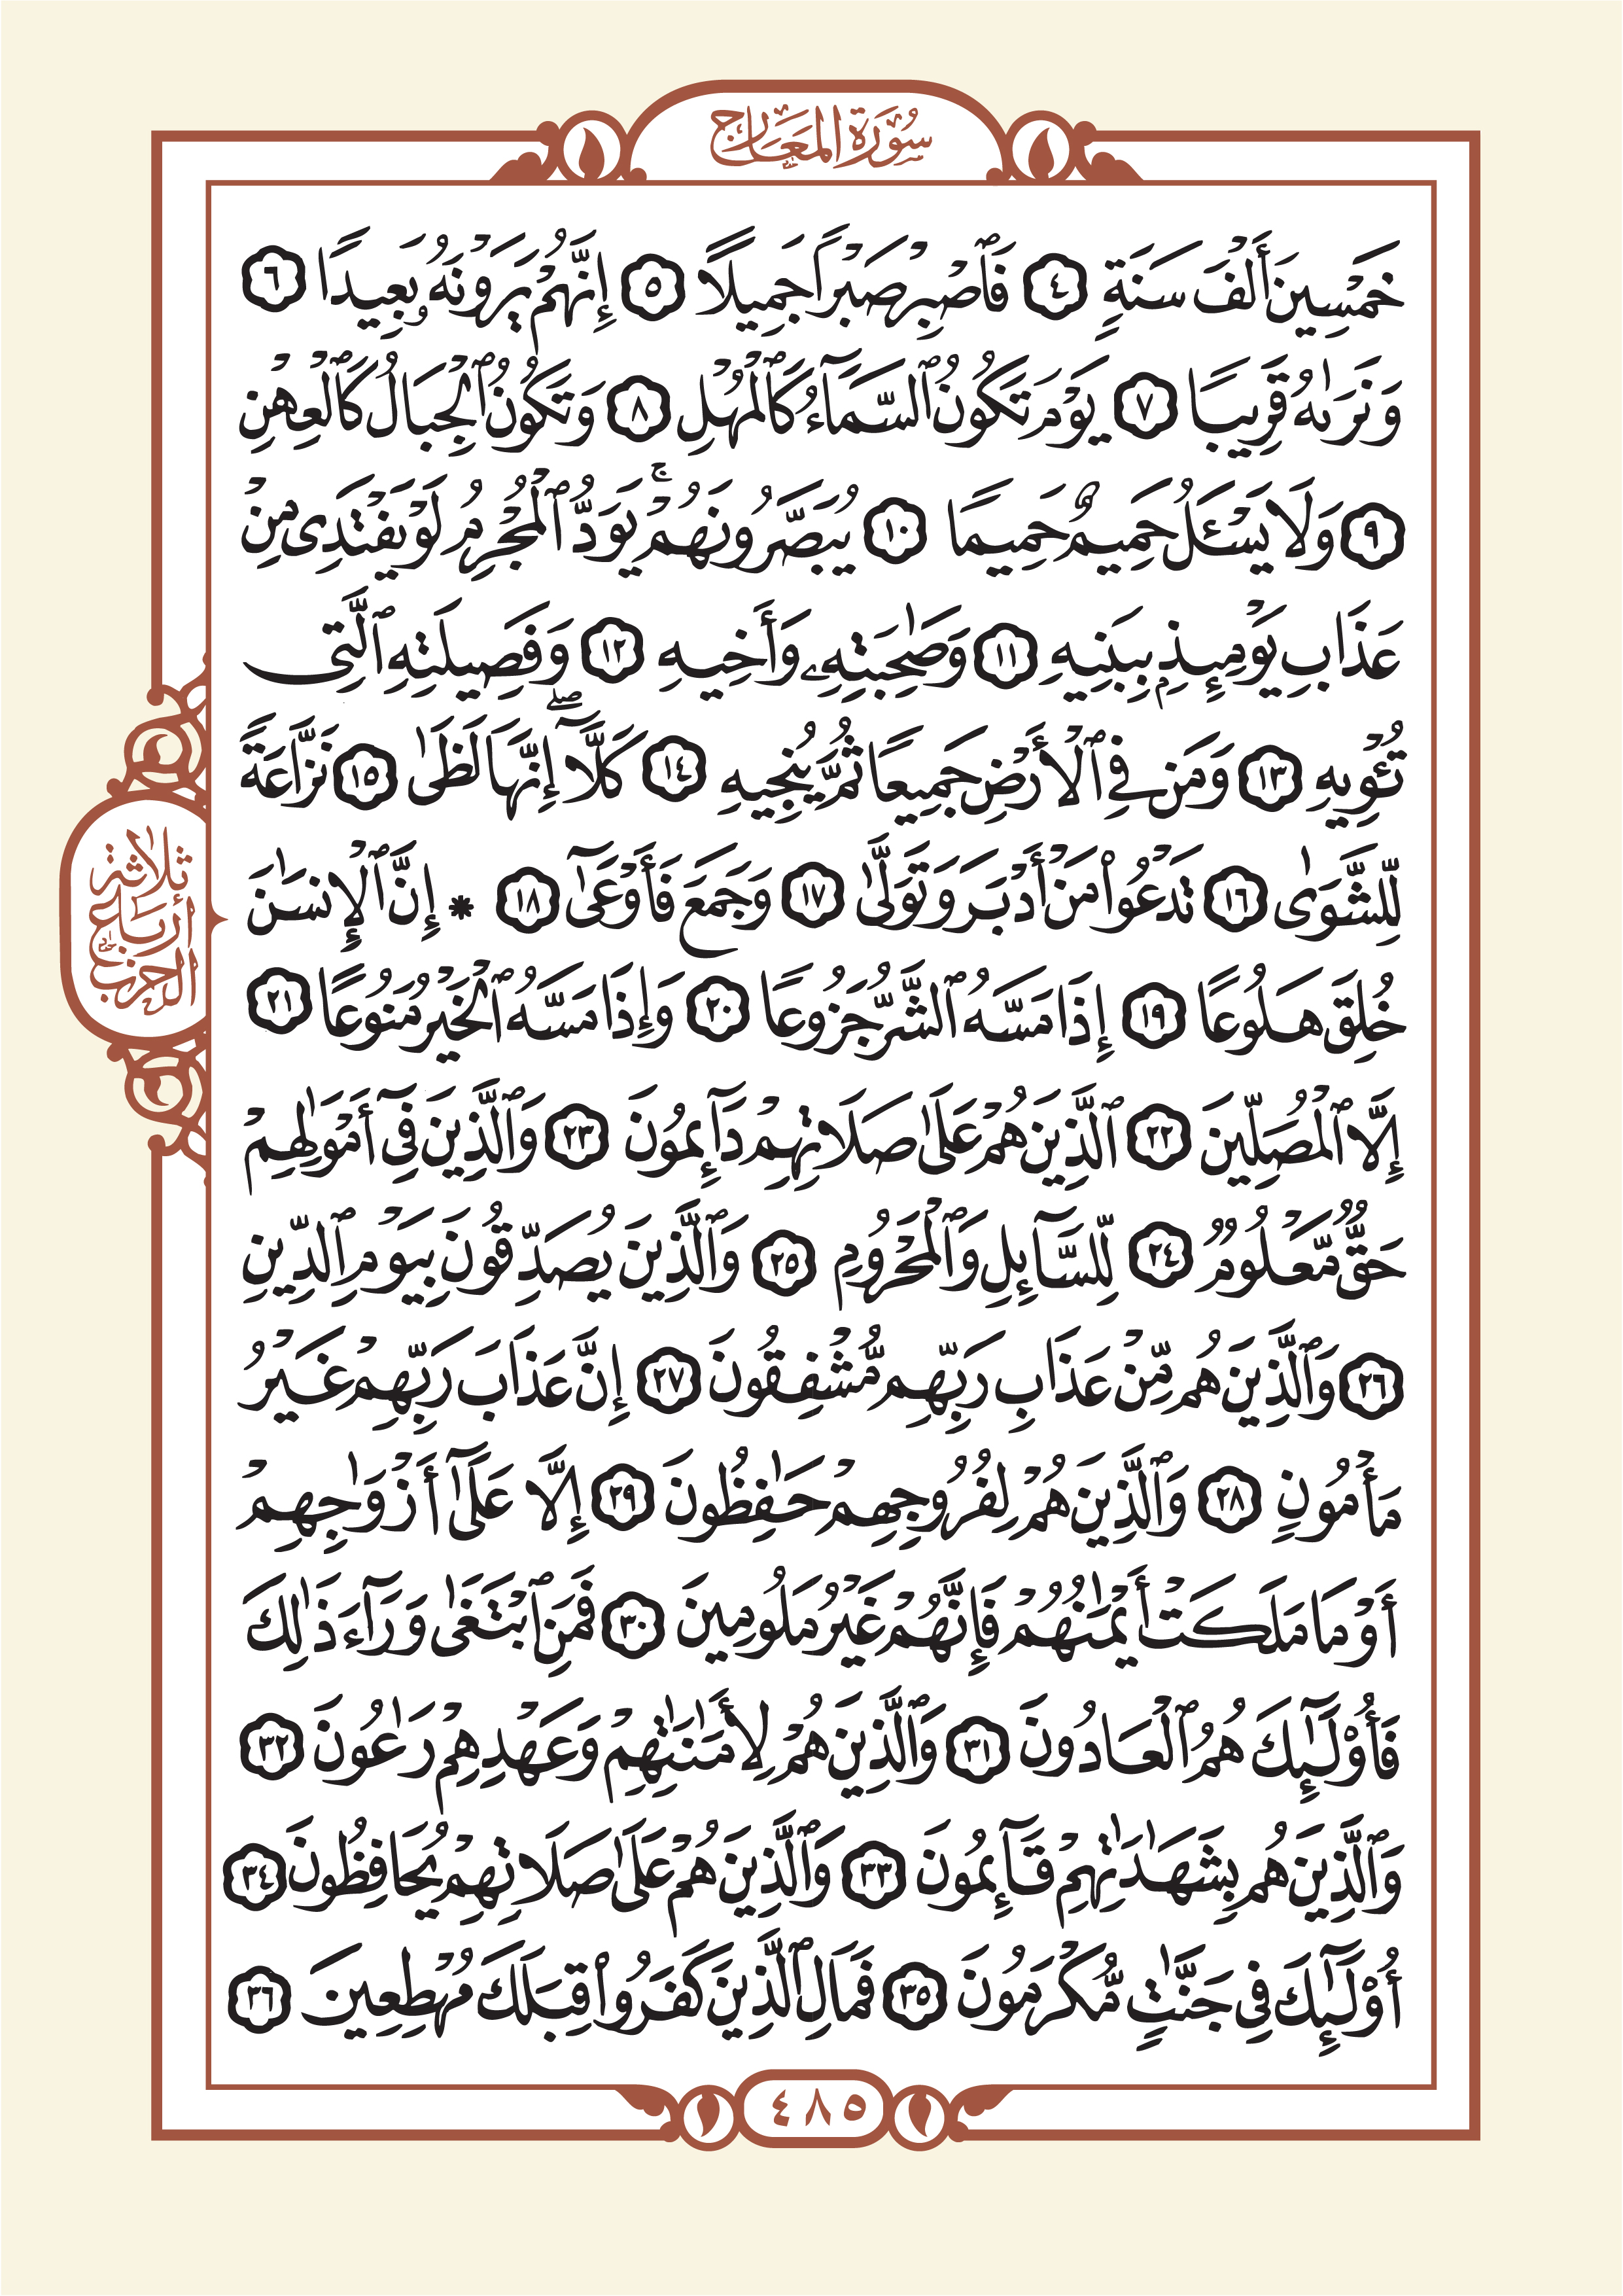 سُورَةُ المَعَارِجِ
خَمْسِينَ أَلْفَ سَنَةٍ ٤ فَٱصْبِرْ صَبْرًا جَمِيلًا ٥ إِنَّهُمْ يَرَوْنَهُۥ بَعِيدًا ٦
وَنَرَىٰهُ قَرِيبًا ٧ يَوْمَ تَكُونُ ٱلسَّمَآءُ كَٱلْمُهْلِ ٨ وَتَكُونُ ٱلْجِبَالُ كَٱلْعِهْنِ
٩ وَلَا يَسْـَٔلُ حَمِيمٌ حَمِيمًا ١٠ يُبَصَّرُونَهُمْ ۚ يَوَدُّ ٱلْمُجْرِمُ لَوْ يَفْتَدِى مِنْ
عَذَابِ يَوْمِئِذٍۭ بِبَنِيهِ ١١ وَصَٰحِبَتِهِۦ وَأَخِيهِ ١٢ وَفَصِيلَتِهِ ٱلَّتِى
تُـْٔوِيهِ ١٣ وَمَن فِى ٱلْأَرْضِ جَمِيعًا ثُمَّ يُنجِيهِ ١٤ كَلَّآ ۖ إِنَّهَا لَظَىٰ ١٥ نَزَّاعَةً
لِّلشَّوَىٰ ١٦ تَدْعُوا۟ مَنْ أَدْبَرَ وَتَوَلَّىٰ ١٧ وَجَمَعَ فَأَوْعَىٰٓ ١٨ * إِنَّ ٱلْإِنسَٰنَ
خُلِقَ هَلُوعًا ١٩ إِذَا مَسَّهُ ٱلشَّرُّ جَزُوعًا ٢٠ وَإِذَا مَسَّهُ ٱلْخَيْرُ مَنُوعًا ٢١
إِلَّا ٱلْمُصَلِّينَ ٢٢ ٱلَّذِينَ هُمْ عَلَىٰ صَلَاتِهِمْ دَآئِمُونَ ٢٣ وَٱلَّذِينَ فِىٓ أَمْوَٰلِهِمْ
حَقٌّ مَّعْلُومٌ ٢٤ لِّلسَّآئِلِ وَٱلْمَحْرُومِ ٢٥ وَٱلَّذِينَ يُصَدِّقُونَ بِيَوْمِ ٱلدِّينِ
٢٦ وَٱلَّذِينَ هُم مِّنْ عَذَابِ رَبِّهِم مُّشْفِقُونَ ٢٧ إِنَّ عَذَابَ رَبِّهِمْ غَيْرُ
مَأْمُونٍ ٢٨ وَٱلَّذِينَ هُمْ لِفُرُوجِهِمْ حَٰفِظُونَ ٢٩ إِلَّا عَلَىٰٓ أَزْوَٰجِهِمْ
أَوْ مَا مَلَكَتْ أَيْمَٰنُهُمْ فَإِنَّهُمْ غَيْرُ مَلُومِينَ ٣٠ فَمَنِ ٱبْتَغَىٰ وَرَآءَ ذَٰلِكَ
فَأُو۟لَٰٓئِكَ هُمُ ٱلْعَادُونَ ٣١ وَٱلَّذِينَ هُمْ لِأَمَٰنَٰتِهِمْ وَعَهْدِهِمْ رَٰعُونَ ٣٢
وَٱلَّذِينَ هُم بِشَهَٰدَٰتِهِمْ قَآئِمُونَ ٣٣ وَٱلَّذِينَ هُمْ عَلَىٰ صَلَاتِهِمْ يُحَافِظُونَ ٣٤
أُو۟لَٰٓئِكَ فِى جَنَّٰتٍ مُّكْرَمُونَ ٣٥ فَمَالِ ٱلَّذِينَ كَفَرُوا۟ قِبَلَكَ مُهْطِعِينَ ٣٦
ثلاثة
أرباع
الحزب
٤٨٥